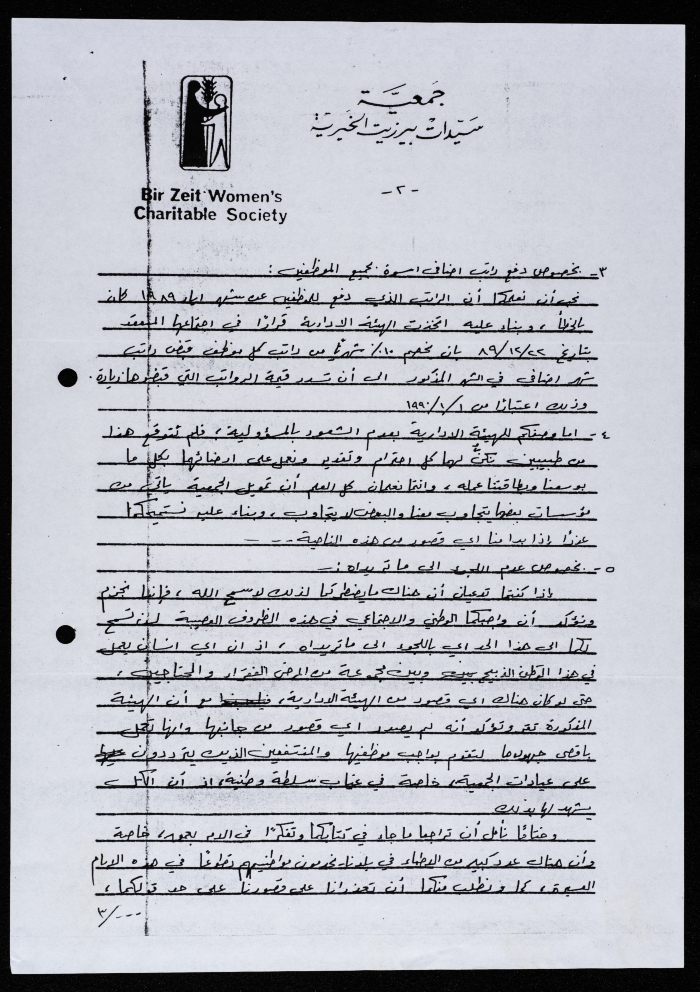 جمعية
سيدات بيرزيت الخيرية
Bir Zeit Women's
Charitable Society
- ٢ -
٣- بخصوص دفع راتب اضافي اسوة بجميع الموظفين :
نحب أن نعلمكما أن الراتب الذي دفع للموظفين عن شهر ايار ١٩٨٩ كان
بالخطأ ، وبناء عليه اتخذت الهيئة الادارية قرارًا في اجتماعها المنعقد
بتاريخ ٨٩/١٢/٢٢ بان يخصم ١٠٪ شهريًا من راتب كل موظف قبض راتب
شهر اضافي في الشهر المذكور الى أن تسدد قيمة الرواتب التي قبضوها زيادة .
وذلك اعتبارًا من ١٩٩٠/١/١
٤- اما وصفكم للهيئة الادارية بعدم الشعور بالمسؤولية ، فلم نتوقع هذا
من طبيبين نكنُّ لهما كل احترام وتقدير ونعمل على ارضائهما بكل ما
بوسعنا وبطاقتنا عمله ، وانتما تعلمان كل العلم أن تمويل الجمعية يأتي من
مؤسسات بعضها يتجاوب معنا والبعض لا يتجاوب ، وبناء عليه نستميحكما
عذرًا إذا بدا منا اي قصور من هذه الناحية ---
٥- بخصوص عدم اللجوء الى ما تريداه :-
إذا كنتما تدعيان أن هناك ما يضطركما لذلك لا سمح الله ، فإننا نجزم
ونؤكد أن واجبكما الوطني والاجتماعي في هذه الظروف العصيبة لن تسمح
لكما الى هذا الحد اي باللجوء الى ما تريداه ، اذ ان اي انسان يعمل
في هذا الوطن الذبيح وبين مجموعة من المرضى الفقراء والمحتاجين ،
حتى لو كان هناك اي قصور من الهيئة الادارية ، مع أن الهيئة
المذكورة تقر وتؤكد أنه لم يصدر اي قصور من جانبها وانها تعمل
باقصى جهودها لتقوم بواجب موظفيها والمنتفعين الذين يترددون
على عيادات الجمعية ، خاصة في غياب سلطة وطنية ، اذ أن الكل
يشهد لها بذلك
وختامًا نأمل أن تراجعا ما جاء في كتابكما وتفكرا في الامر بجهد ، خاصة
وأن هناك عدد كبير من الاطباء في بلدنا يخدمون مواطنيهم تطوعًا في هذه الايام
العصيبة ، كما ونطلب منكما أن تعذرانا على قصورنا على حد قولكما ،
٣/---